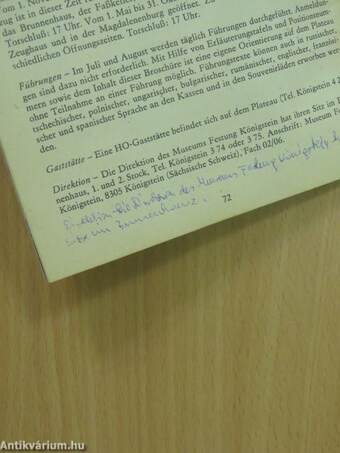 vom 1. Nove
zug ist in dieser Zeit
das Brunnenhaus, der Faßkeller
Torschluß: 17 Uhr. Vom 1. Mai bis 31. Ok
Zeughaus und in der Magdalenenburg geöffnet.
schiedlichen Öffnungszeiten. Torschluß: 17 Uhr.
Führungen – Im Juli und August werden täglich Führungen durchgeführt. Anmeldun-
gen sind dazu nicht erforderlich. Mit Hilfe von Erläuterungstafeln und Positionsnum-
mern sowie dem Inhalt dieser Broschüre ist eine eigene Orientierung auf dem Plateau
ohne Teilnahme an einer Führung möglich. Führungstexte können auch in russischer,
tschechischer, polnischer, ungarischer, bulgarischer, rumänischer, englischer, französi-
scher und spanischer Sprache an den Kassen und in den Souvenirläden erworben wer
Gaststätte – Eine HO-Gaststätte befindet sich auf dem Plateau (Tel. Königstein 4 2
Direktion – Die Direktion des Museums Festung Königstein hat ihren Sitz im B
nenhaus, 1. und 2. Stock, Tel. Königstein 3 74 oder 3 75. Anschrift: Museum F
Königstein, 8305 Königstein (Sächsische Schweiz), Fach 02/06.
72
Direktion - Die Direktion des Museums Festung Königstein
Antikvárium.hu